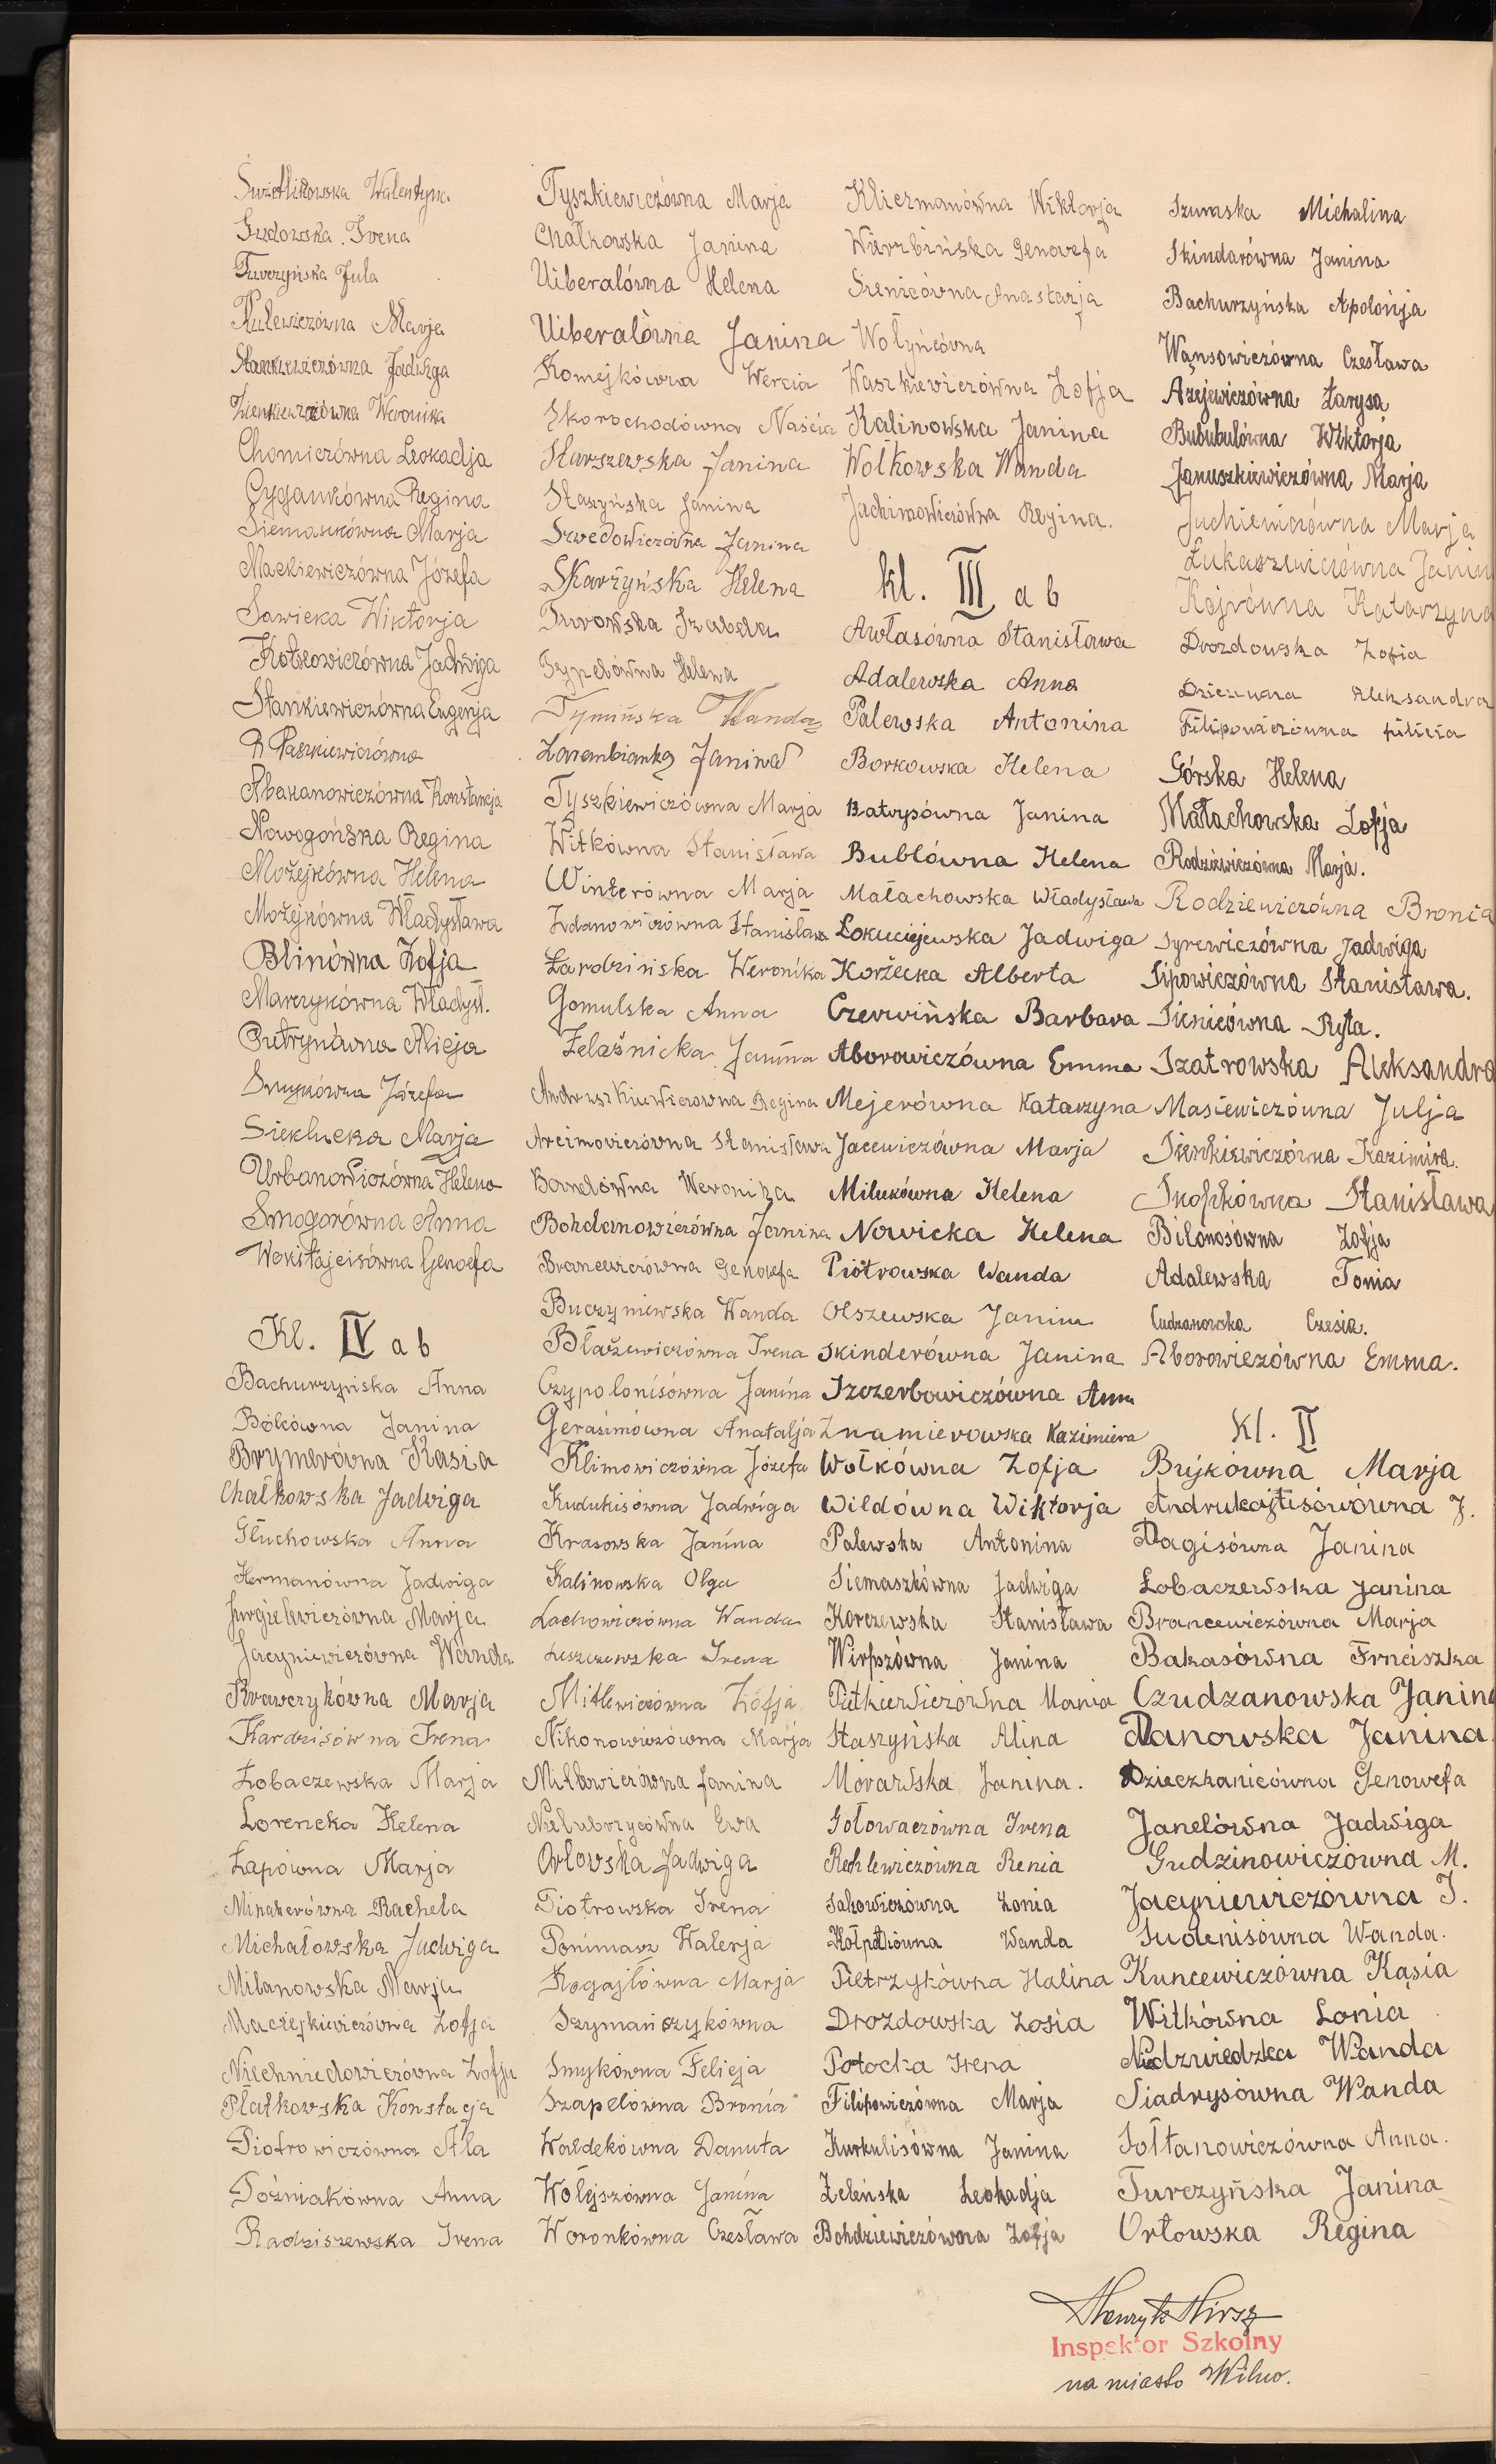 Świetlikowska Walentyna
Sudowska Irena
Turczyńska Jula
Kulewiczówna Marja
Stankiewiczówna Jadwiga
Zienkiewiczówna Weronika
Chomiczówna Leokadja
Cygankówna Regina
Siemaszkówna Marja
Mackiewiczówna Józefa
Sawicka Wiktorja
Kotłowiczówna Jadwiga
Stankiewiczówna Eugenja
R Paszkiewiczówna
Abakanowiczówna Konstancja
Nowogońska Regina
Możejkówna Helena
Możejkówna Władysława
Blinówna Zofja
Marczykówna Władysł.
Putrynówna Alicja
Smykówna Józefa
Sieklucka Marja
Urbanowiczówna Helena
Smogorówna Anna
Wokitajcisówna Genoefa
Kl. IV a b
Bachurzyńska Anna
Bólcówna Janina
Brymerówna Kasia
Chałkowska Jadwiga
Głuchowska Anna
Hermanówna Jadwiga
Jurgielewiczówna Marja
Jacyniewiczówna Wanda
Krawczykówna Marja
Kardzisówna Irena
Łobaczewska Marja
Lorencka Helena
Łapówna Marja
Minakerówna Rachela
Michałowska Jadwiga
Milanowska Marja
Maciejkiewiczówna Zofja
Niechniedowiczówna Zofja
Płatkowska Konstacja
Piotrowiczówna Ala
Poźniakówna Anna
Radziszewska Irena
Tyszkiewiczówna Marja
Chałkowska Janina
Uiberalówna Helena
Uiberalówna Janina
Komejkówna Wercia
Skorochodówna Naścia
Starszewska Janina
Staszyńska Janina
Szwedowiczówna Janina
Skarżyńska Helena
Surowska Izabela
Sypelówna Helena
Tymińska Wanda
Zarambianka Janina
Tyszkiewiczówna Marja
Witkówna Stanisława
Winterówna Marja
Zdanowiczówna Stanisława
Żardzińska Weronika
Gomulska Anna
Żelaśnicka Janina
Andruszkiewiczowna Regina
Arcimowiczówna Stanisława
Bandówna Weronika
Bohdanowiczówna Janina
Brancewiczówna Genowefa
Buczyniewska Wanda
Błażewiczówna Irena
Czypolonisówna Janina
Gerasimówna Anatalja
Klimowiczówna Józefa
Kudukisówna Jadwiga
Krasowska Janina
Kalinowska Olga
Lachowiczówna Wanda
Leszczewska Irena
Mitlewiczówna Zofja
Nikonowiczówna Marja
Mitkowiczówna Janina
Nielubszycówna Ewa
Orłowska Jadwiga
Piotrowska Irena
Ponimasz Walerja
Rogajłówna Marja
Szymańszykówna
Smykówna Felicja
Szapelówna Bronia
Waldekówna Danuta
Wołejszówna Janina
Woronkówna Czesława
Kliczmanówna Wiktorja
Wierzbińska Genowefa
Sienicówna Anastazja
Wołyńcówna
Waszkiewiczówna Zofja
Kalinowska Janina
Wołkowska Wanda
Jachimowiczówna Regina.
kl. III a b
Awłasówna Stanisława
Adalewska Anna
Palewska Antonina
Borkowska Helena
Batrysówna Janina
Bublówna Helena
Małachowska Władysława
Lokuciejewska Jadwiga
Korżecka Alberta
Czerwińska Barbara
Aborowiczówna Emma
Mejerówna Katarzyna
Jacewiczówna Marja
Milukówna Helena
Nowicka Helena
Piotrowska Wanda
Olszewska Janina
Skinderówna Janina
Szczerbowiczówna Anna
Znamierowska Kazimiera
Wołkówna Zofja
Wildówna Wiktorja
Palewska Antonina
Siemaszkówna Jadwiga
Korczewska Stanisława
Wirpszówna Janina
Pietkiewiczówna Mania
Staszyńska Alina
Morawska Janina.
Gołowaczówna Irena
Rechlewiczówna Renia
Sakowiczówna Zonia
Kołpakówna Wanda
Pietrzykówna Halina
Drozdowska Zosia
Potocka Irena
Filipowiczówna Marja
Kurkulisówna Janina
Zeleńska Leokadja
Bohdziewiczówna Zofja
Szumska Michalina
Skindarówna Janina
Bachurzyńska Apolonja
Wąnsowiczówna Czesława
Azejewiczówna Łarysa
Bububulówna Wiktorja
Januszkiewiczówna Marja
Juchiewiczówna Marja
Łukaszewiczówna Janin
Kojrówna Katarzyna
Drozdowska Zofia
Dziczuwna Aleksandra
Filipowiczówna Julicia
Górska Helena
Małachowska Zofja
Rodziewiczówna Marja.
Rodziewiczówna Bronia
Syrewiczówna Jadwiga
Sipowiczówna Stanisława.
Sienicówna Ryta.
Szatrowska Aleksandra
Masiewiczówna Julja
Sienkiewiczówna Kazimira.
Skopkówna Stanisława
Bilonosówna Zofja
Adalewska Tonia
Cudzanowska Czesia.
Aborowiezówna Emma.
Kl. II
Bujkówna Marja
Andrukajtisówówna J.
Dagisówna Janina
Łobaczewska Janina
Brancewiczówna Marja
Bakasówna Frnciszka
Czudzanowska Janina
Danowska Janina
Dzieczkanicówna Genowefa
Janelówna Jadwiga
Gudzinowiczówna M.
Jacyniewiczówna J.
Judenisówna Wanda.
Kuncewiczówna Kasia
Witkówna Lonia
Niedzwiedzka Wanda
Siadrysówna Wanda
Sołtanowiczówna Anna.
Turczyńska Janina
Orłowska Regina
Henryk Hirsz
Inspektor Szkolny
na miasto Wilno.